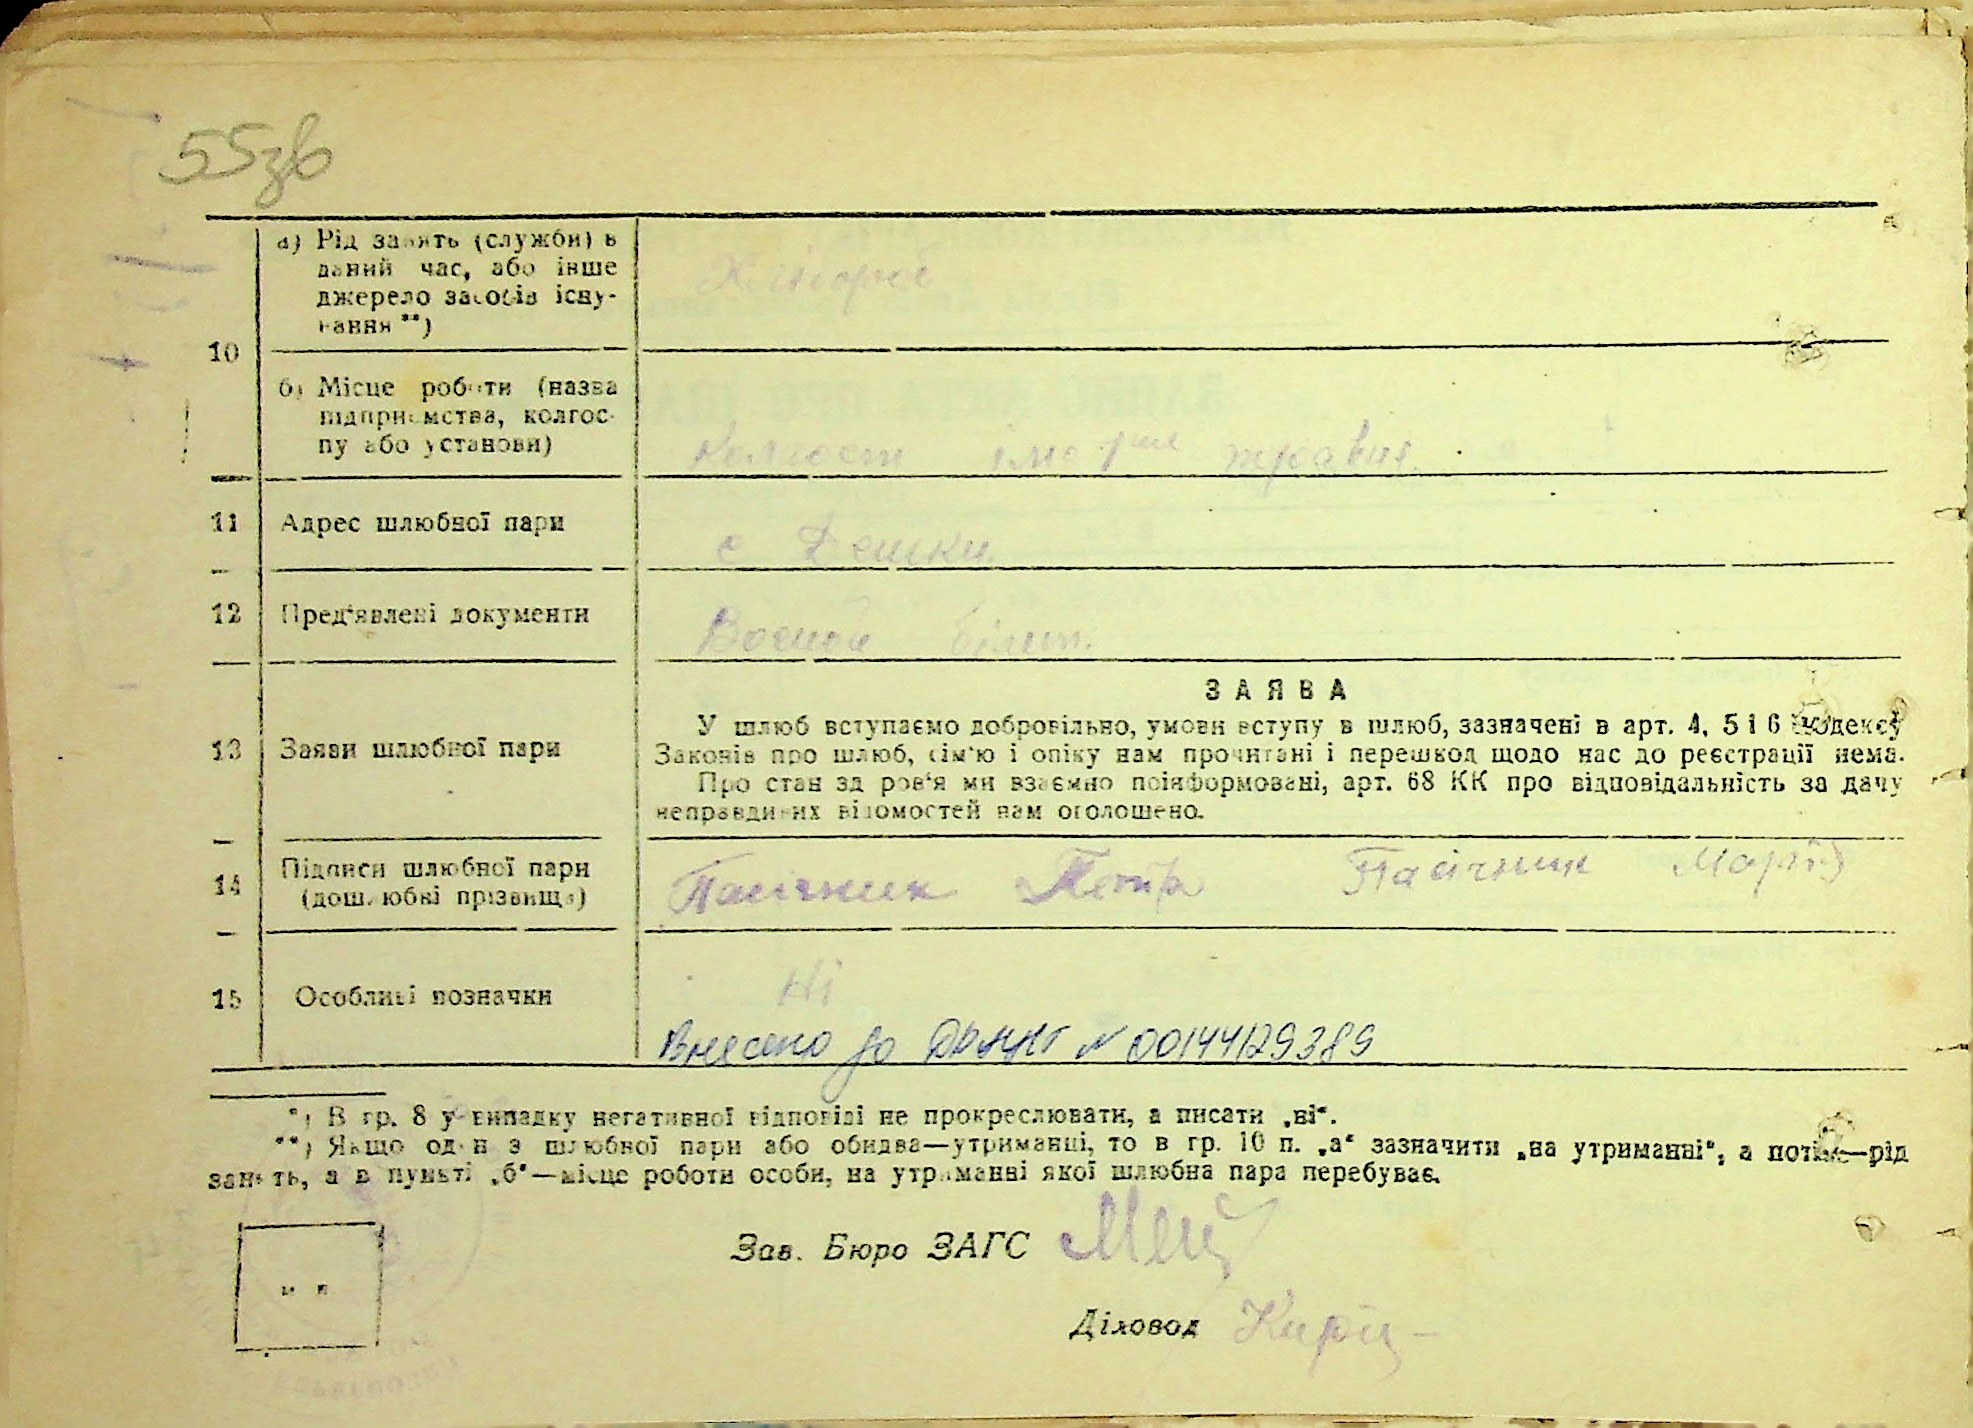 55зв
а) Рід занять (служби) в
даний час, або інше
джерело засобів існу-
вання **)
10
б) Місце роботи (назва
підприємства, колгос-
пу або установи)
Колгосп травня
11 Адрес шлюбної пари
с Дешки
12 Пред'явлені документи
білет.
ЗАЯВА
У шлюб вступаємо добровільно, умови вступу в шлюб, зазначені в арт. 4, 5 і 6 Кодексу
13 Заяви шлюбної пари Законів про шлюб, сім'ю і опіку нам прочитані і перешкод щодо нас до реєстрації нема.
Про стан здоров'я ми взаємно поінформовані, арт. 68 КК про відповідальність за дачу
неправдивих відомостей нам оголошено.
14 Підписи шлюбної пари
(дошлюбні прізвища)
Пасічник Петро Пасічник Марія
15 Особливі позначки
Ні
Внесено до № 00144129389
*) В гр. 8 у випадку негативної відповіді не прокреслювати, а писати „ні“.
**) Якщо один з шлюбної пари або обидва—утриманці, то в гр. 10 п. „а“ зазначити „на утриманні“, а потім—рід
занять, а в пункті „б“—місце роботи особи, на утриманні якої шлюбна пара перебуває.
Зав. Бюро ЗАГС
м п
Діловод